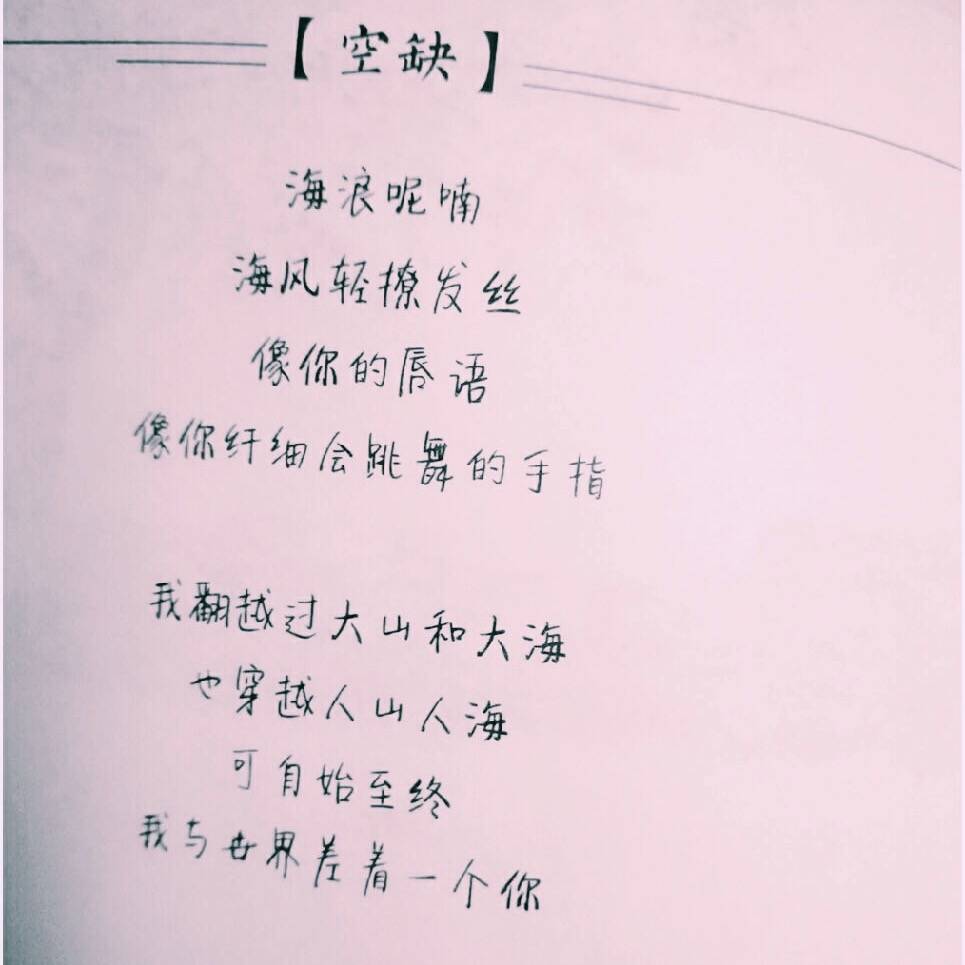 【空缺】
海浪呢喃
海风轻撩发丝
像你的唇语
像你纤细会跳舞的手指
我翻越过大山和大海
也穿越人山人海
可自始至终
我与世界差着一个你